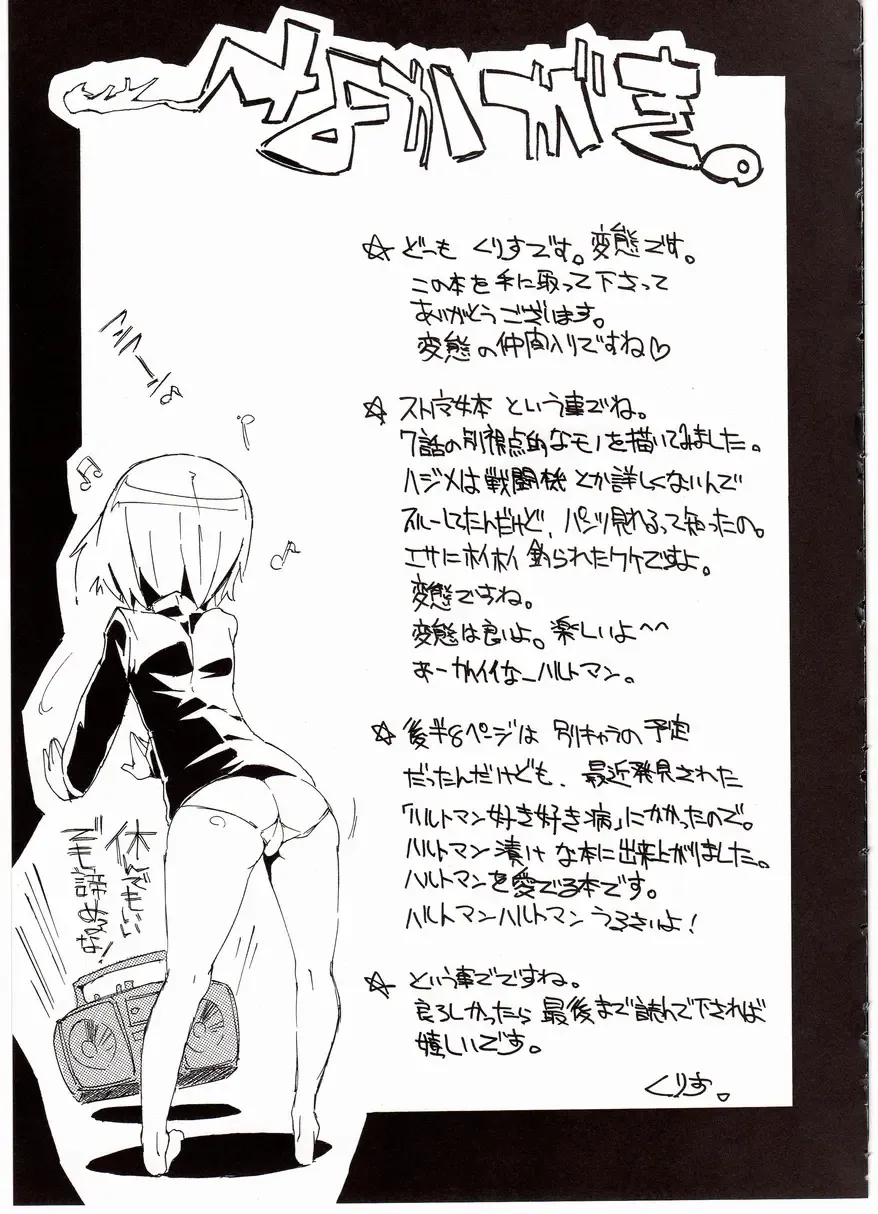 なかがき。
☆ どーも くりすです。変態です。
この本を手に取って下さって
ありがとうございます。
変態の仲間入りですね♡
☆ スト魔女本 という事でね。
7話の別視点的なモノを描いてみました。
ハジメは戦闘機とか詳しくないんで
スルーしてたんだけど、パンツ見れるって知ったの。
エサにホイホイ釣られたワケですよ。
変態ですね。
変態は良いよ。楽しいよ〜〜
あーかわイイなーハルトマン。
☆ 後半8ページは 別キャラの予定
だったんだけども、最近発見された
「ハルトマン好き好き病」にかかったので。
ハルトマン漬けな本に出来上がりました。
ハルトマンを愛でる本です。
ハルトマンハルトマンうるさいよ!
☆ という事でですね。
良ろしかったら最後まで読んで下されば
嬉しいです。
くりす。
休んでもいい
でも諦めんな!